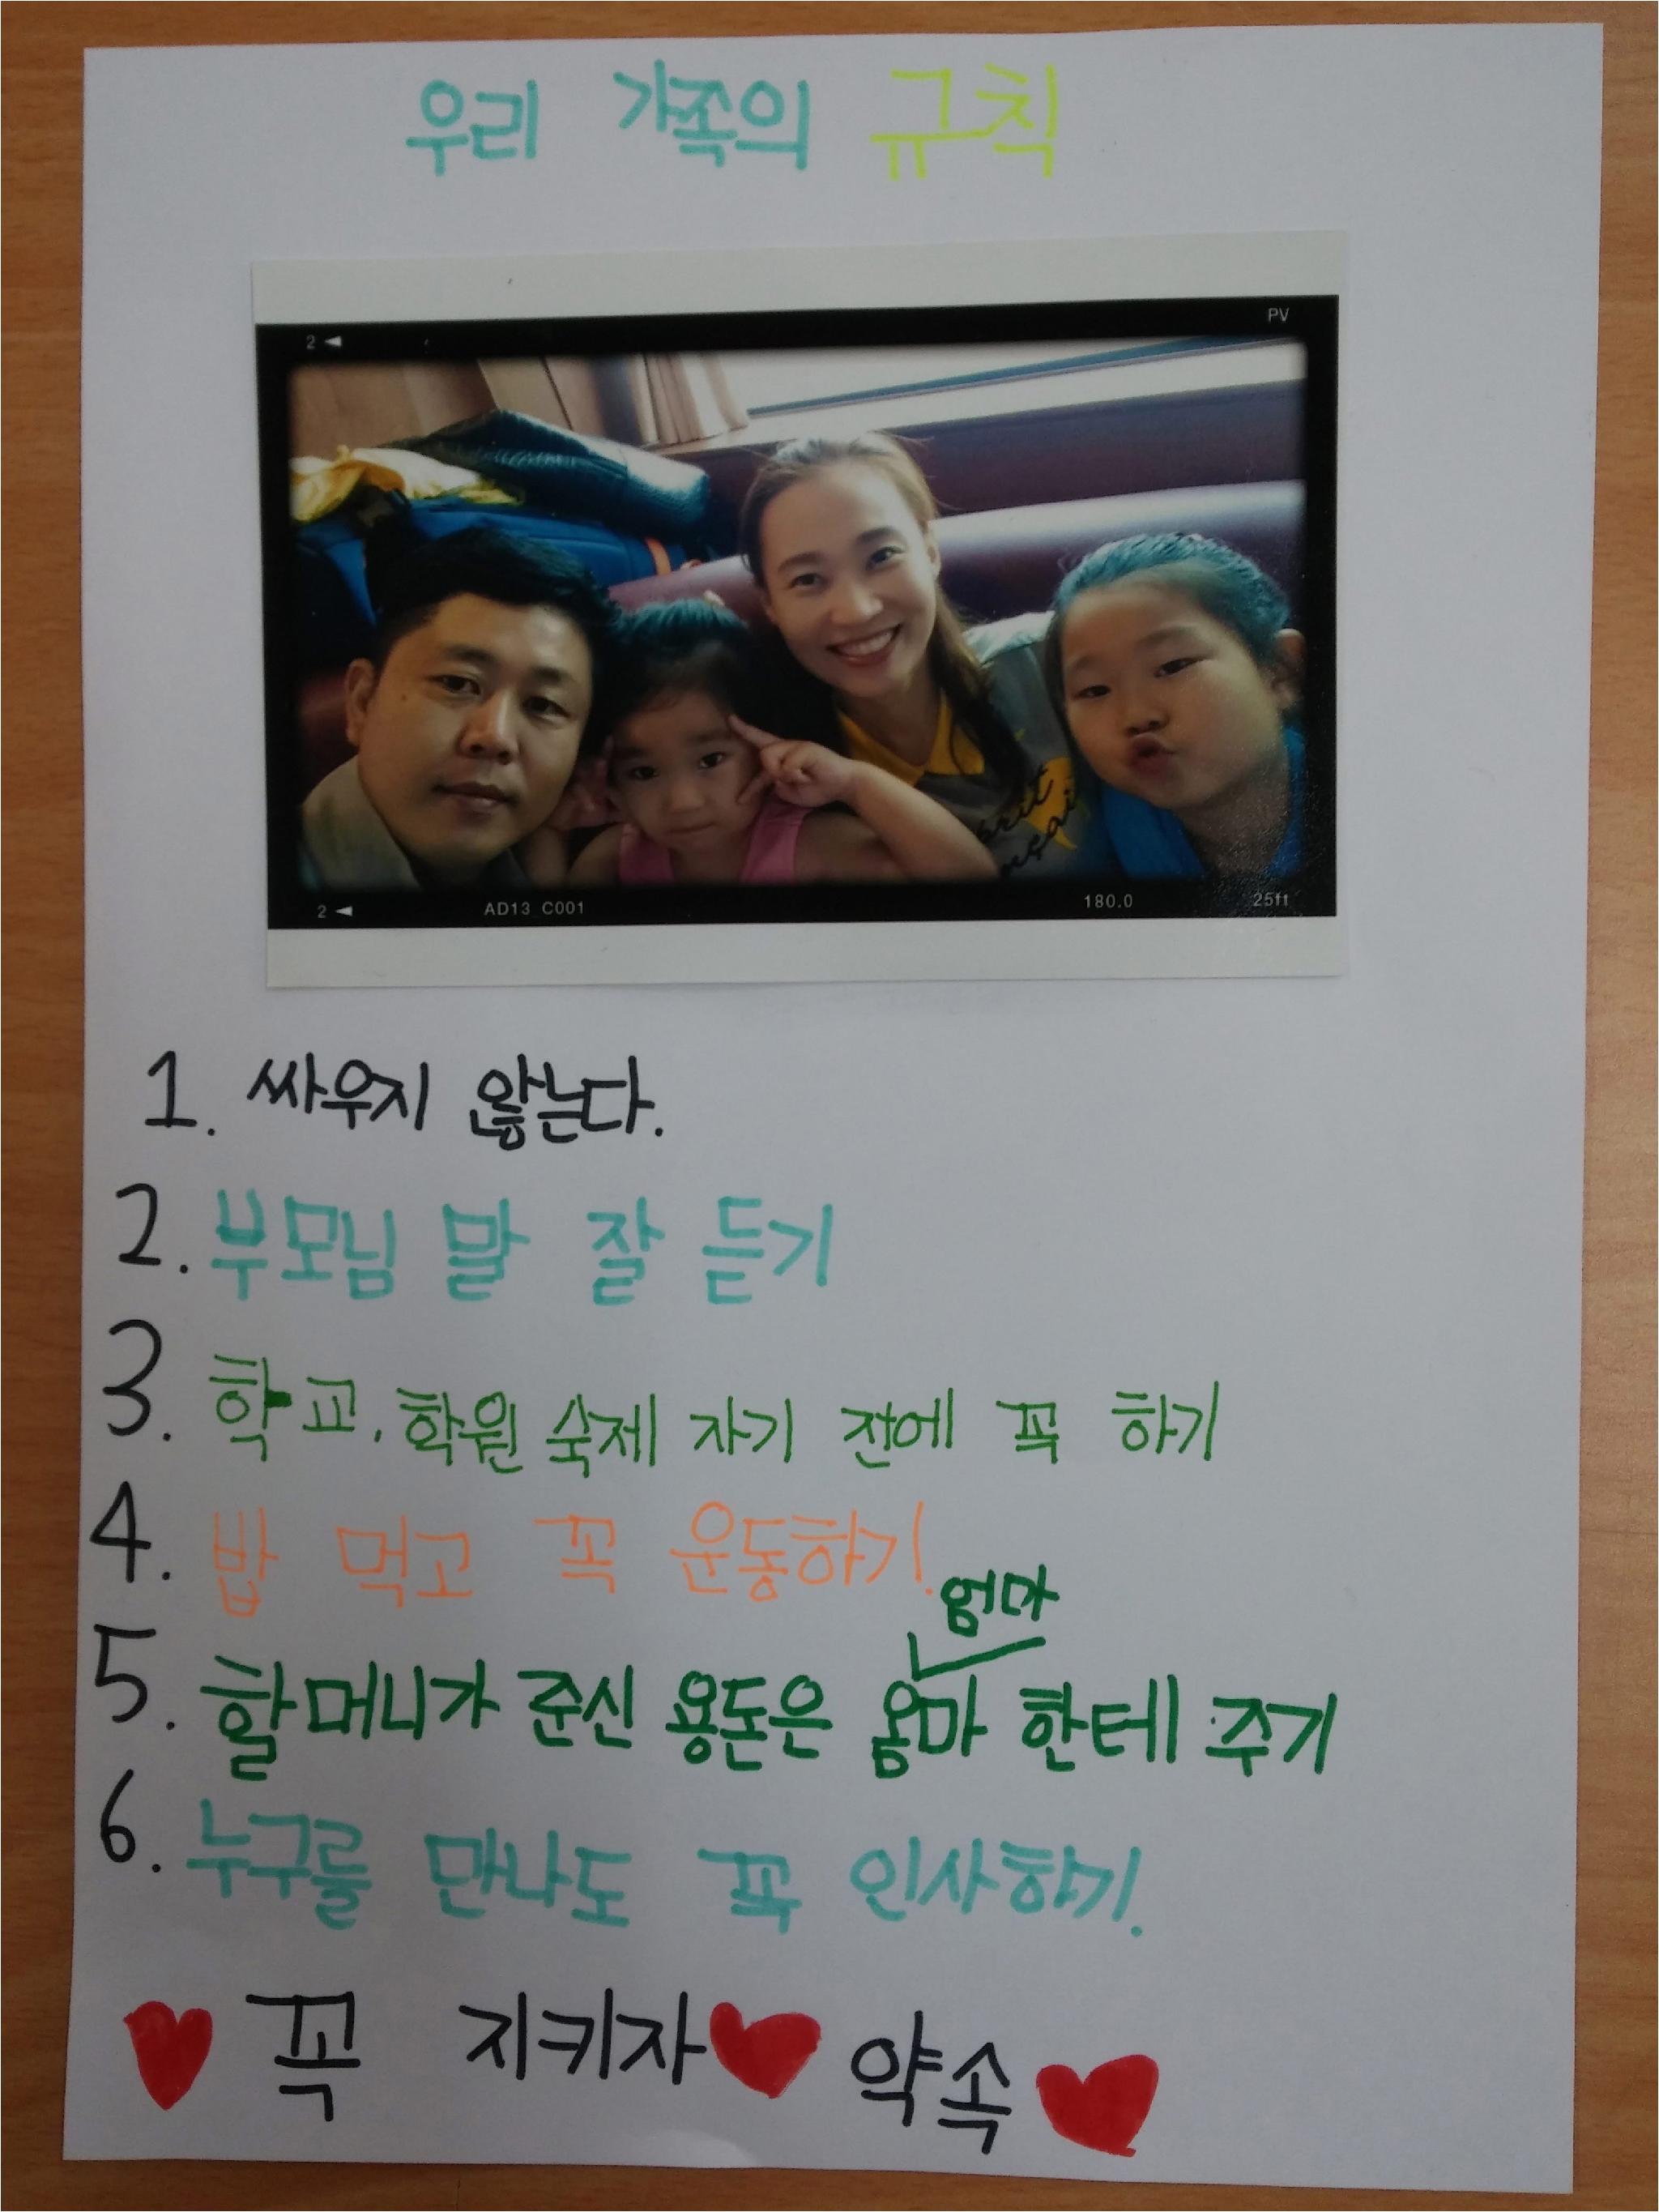 우리 가족의 규칙
2 ◄ PV
2 ◄ AD13 C001 180.0 25ft
1. 싸우지 않는다.
2. 부모님 말 잘 듣기
3. 학교, 학원 숙제 자기 전에 꼭 하기
4. 밥 먹고 꼭 운동하기.
엄마
5. 할머니가 준신 용돈은 옴마 한테 주기
6. 누구를 만나도 꼭 인사하기.
♥ 꼭 지키자 ♥ 약속 ♥